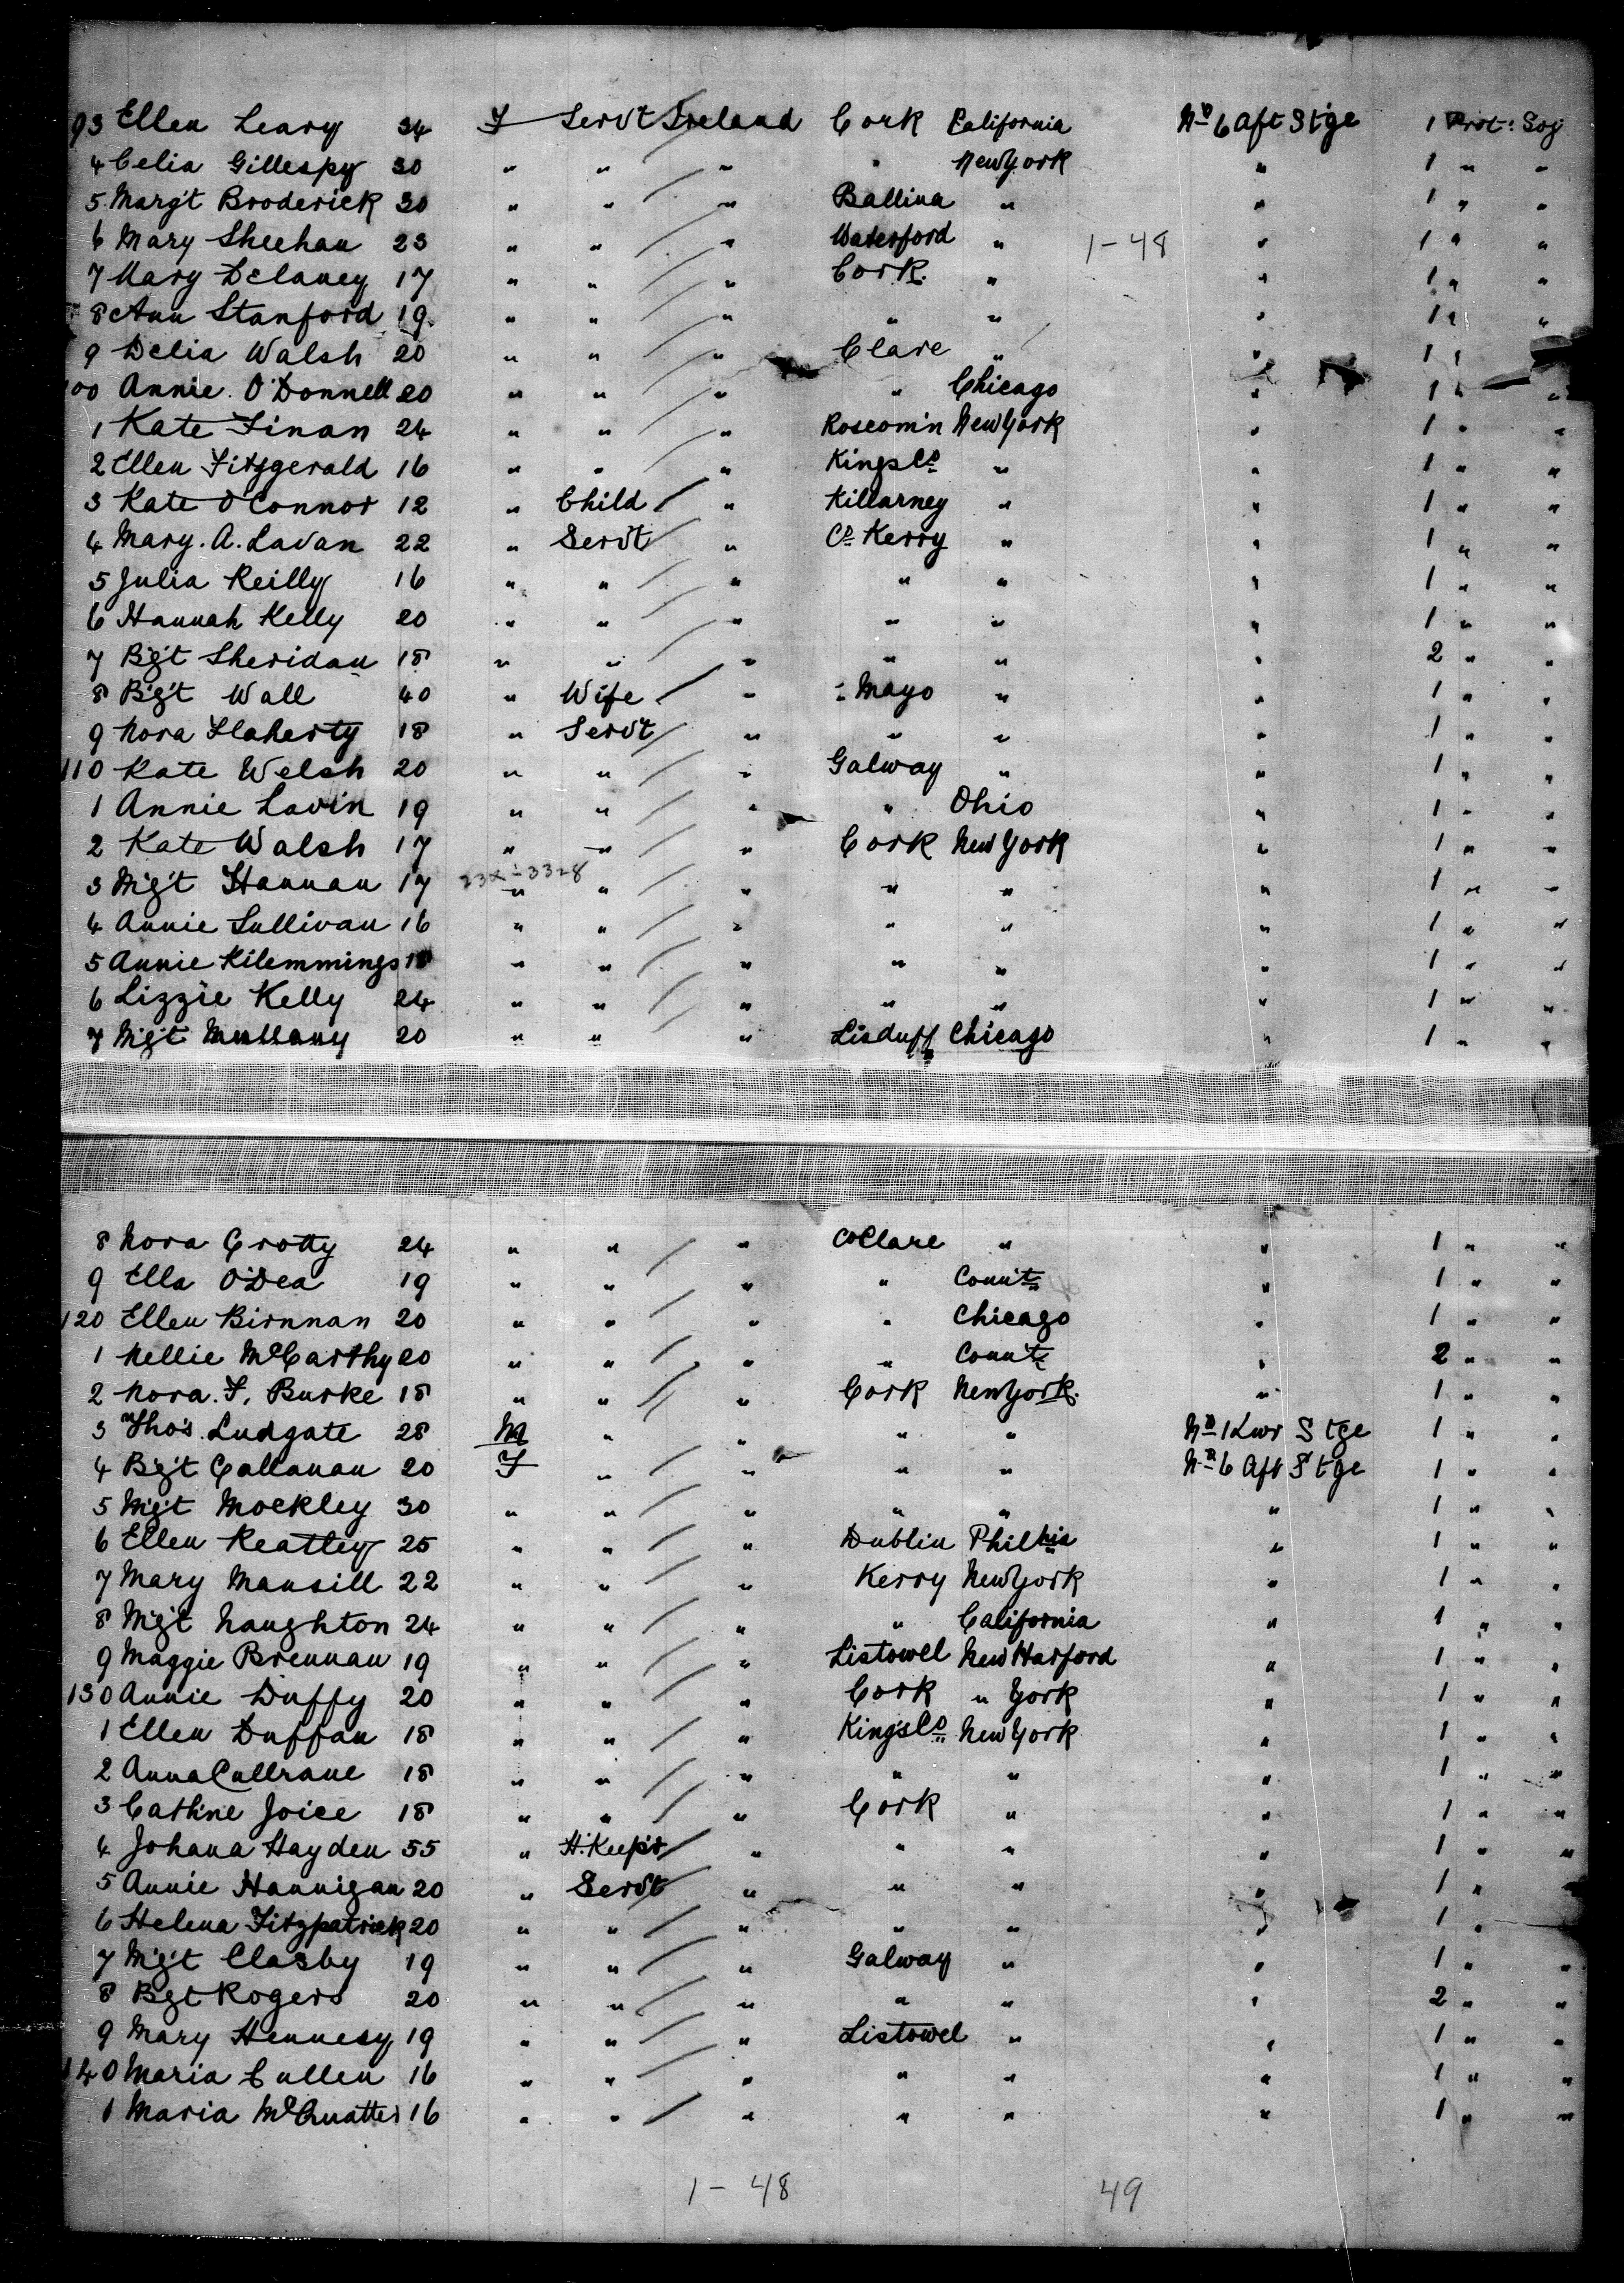 93 Ellen Leary 34 F Servt Ireland Cork California No 6 Aft Stge 1 Prot: Soj
4 Celia Gillespy 30 " " " " New York " 1 " "
5 Margt Broderick 30 " " " Ballina " " 1 " "
6 Mary Sheehan 23 " " " Waterford " 1-48 " 1 " "
7 Mary Delaney 17 " " " Cork. " " 1 " "
8 Ann Stanford 19 " " " " " " 1 " "
9 Delia Walsh 20 " " " Clare " " 1 "
100 Annie O'Donnell 20 " " " " Chicago " 1 " "
1 Kate Finan 24 " " " Roscom'n New York " 1 " "
2 Ellen Fitzgerald 16 " " " Kings Co " " 1 " "
3 Kate O'Connor 12 " Child " Killarney " " 1 " "
4 Mary. A. Lavan 22 " Servt " Co Kerry " " 1 " "
5 Julia Reilly 16 " " " " " " 1 " "
6 Hannah Kelly 20 " " " " " " 1 " "
7 Bgt Sheridan 18 " " " " " " 2 " "
8 Bgt Wall 40 " Wife " " Mayo " " 1 " "
9 Nora Flaherty 18 " Servt " " " " 1 " "
110 Kate Welsh 20 " " " Galway " " 1 " "
1 Annie Lavin 19 " " " " Ohio " 1 " "
2 Kate Walsh 17 " " " Cork New York " 1 " "
3 Mgt Hannan 17 " " " " " " 1 " "
4 Annie Sullivan 16 " " " " " " 1 " "
5 Annie Kilemmings " " " " " " 1 " "
6 Lizzie Kelly 24 " " " " " " 1 " "
7 Mgt Mullany 20 " " " Lisduff Chicago " 1 " "
8 Nora Crotty 24 " " " Co Clare " " 1 " "
9 Ella O'Dea 19 " " " " Connt " 1 " "
120 Ellen Birnnan 20 " " " " Chicago " 1 " "
1 Nellie McCarthy 20 " " " " Connt " 2 " "
2 Nora. F. Burke 18 " " " Cork New York. " 1 " "
3 Thos. Ludgate 28 M " " " " No 1 Lwr Stge 1 " "
4 Bgt Callanan 20 F " " " " No 6 Aft Stge 1 " "
5 Mgt Mockley 30 " " " " " " 1 " "
6 Ellen Keatley 25 " " " Dublin Philhia " 1 " "
7 Mary Mansill 22 " " " Kerry New York " 1 " "
8 Mgt Naughton 24 " " " " California " 1 " "
9 Maggie Brennan 19 " " " Listowel New Harford " 1 " "
130 Annie Duffy 20 " " " Cork " York " 1 " "
1 Ellen Duffan 18 " " " Kings Co New York " 1 " "
2 Anna Cullrane 18 " " " " " " 1 " "
3 Cathne Joice 18 " " " Cork " " 1 " "
4 Johana Hayden 55 " H. Keepr " " " " 1 " "
5 Annie Hannigan 20 " Servt " " " " 1 " "
6 Helena Fitzpatrick 20 " " " " " " 1 "
7 Mgt Clasby 19 " " " Galway " " 1 " "
8 Bgt Rogers 20 " " " " " " 2 " "
9 Mary Hennesy 19 " " " Listowel " " 1 " "
140 Maria Cullen 16 " " " " " " 1 " "
1 Maria 16 " " " " " " 1 " "
1-48 49